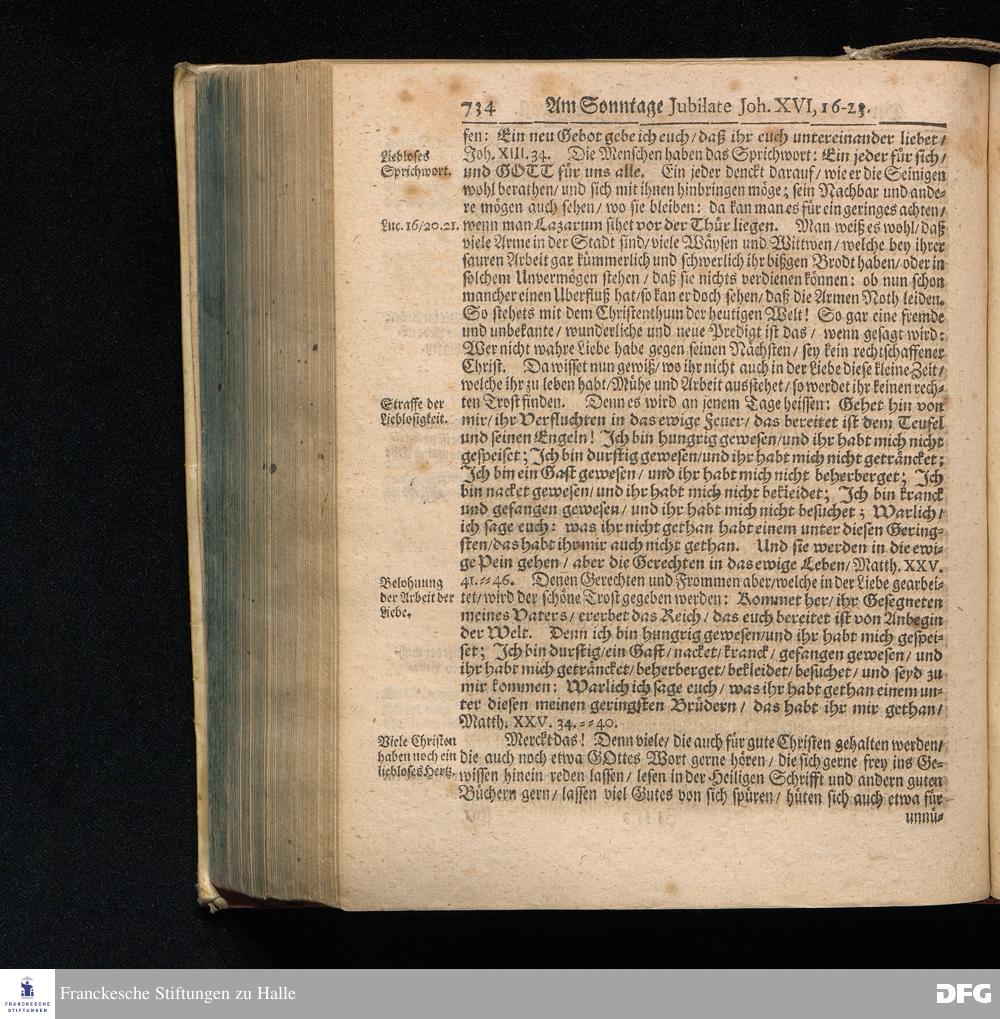 734 Am Sonntage Jubilate Joh. XVI, 16-23.
fen: Ein neu Gebot gebe ich euch/ daß ihr euch untereinander liebet/
Liebloses
Sprichwort.
Joh. XIII. 34. Die Menschen haben das Sprichwort: Ein jeder für sich/
und GOTT für uns alle. Ein jeder denckt darauf/ wie er die Seinigen
wohl berathen/ und sich mit ihnen hinbringen möge; sein Nachbar und ande-
re mögen auch sehen/ wo sie bleiben: da kan man es für ein geringes achten/
Luc. 16/20.21.
wenn man Lazarum sihet vor der Thür liegen. Man weiß es wohl/ daß
viele Arme in der Stadt sind/ viele Wäysen und Wittwen/ welche bey ihrer
sauren Arbeit gar kümmerlich und schwerlich ihr bißgen Brodt haben/ oder in
solchem Unvermögen stehen/ daß sie nichts verdienen können: ob nun schon
mancher einen Uberfluß hat/ so kan er doch sehen/ daß die Armen Noth leiden.
So stehets mit dem Christenthum der heutigen Welt! So gar eine fremde
und unbekante/ wunderliche und neue Predigt ist das/ wenn gesagt wird:
Wer nicht wahre Liebe habe gegen seinen Nächsten/ sey kein rechtschaffener
Christ. Da wisset nun gewiß/ wo ihr nicht auch in der Liebe diese kleine Zeit/
welche ihr zu leben habt/ Mühe und Arbeit ausstehet/ so werdet ihr keinen rech-
Straffe der
Lieblosigkeit.
ten Trost finden. Denn es wird an jenem Tage heissen: Gehet hin von
mir/ ihr Verfluchten in das ewige Feuer/ das bereitet ist dem Teufel
und seinen Engeln! Ich bin hungrig gewesen/ und ihr habt mich nicht
gespeiset; Ich bin durstig gewesen/ und ihr habt mich nicht geträncket;
Ich bin ein Gast gewesen/ und ihr habt mich nicht beherberget; Ich
bin nacket gewesen/ und ihr habt mich nicht bekleidet; Ich bin kranck
und gefangen gewesen/ und ihr habt mich nicht besuchet; Warlich/
ich sage euch: was ihr nicht gethan habt einem unter diesen Gering-
sten/ das habt ihr mir auch nicht gethan. Und sie werden in die ewi-
ge Pein gehen/ aber die Gerechten in das ewige Leben/ Matth. XXV.
Belohnung
der Arbeit der
Liebe.
41.--46. Denen Gerechten und Frommen aber/ welche in der Liebe gearbei-
tet/ wird der schöne Trost gegeben werden: Kommet her/ ihr Gesegneten
meines Vaters/ ererbet das Reich/ das euch bereitet ist von Anbegin
der Welt. Denn ich bin hungrig gewesen/ und ihr habt mich gespei-
set; Ich bin durstig/ ein Gast/ nacket/ kranck/ gefangen gewesen/ und
ihr habt mich geträncket/ beherberget/ bekleidet/ besuchet/ und seyd zu
mir kommen: Warlich ich sage euch/ was ihr habt gethan einem un-
ter diesen meinen geringsten Brüdern/ das habt ihr mir gethan/
Matth. XXV. 34.--40.
Viele Christen
haben noch ein
liebloses Hertz.
Merckt das! Denn viele/ die auch für gute Christen gehalten werden/
die auch noch etwa GOttes Wort gerne hören/ die sich gerne frey ins Ge-
wissen hinein reden lassen/ lesen in der Heiligen Schrifft und andern guten
Büchern gern/ lassen viel Gutes von sich spüren/ hüten sich auch etwa für
unnü-
FRANCKESCHE
STIFTUNGEN
Franckesche Stiftungen zu Halle
DFG